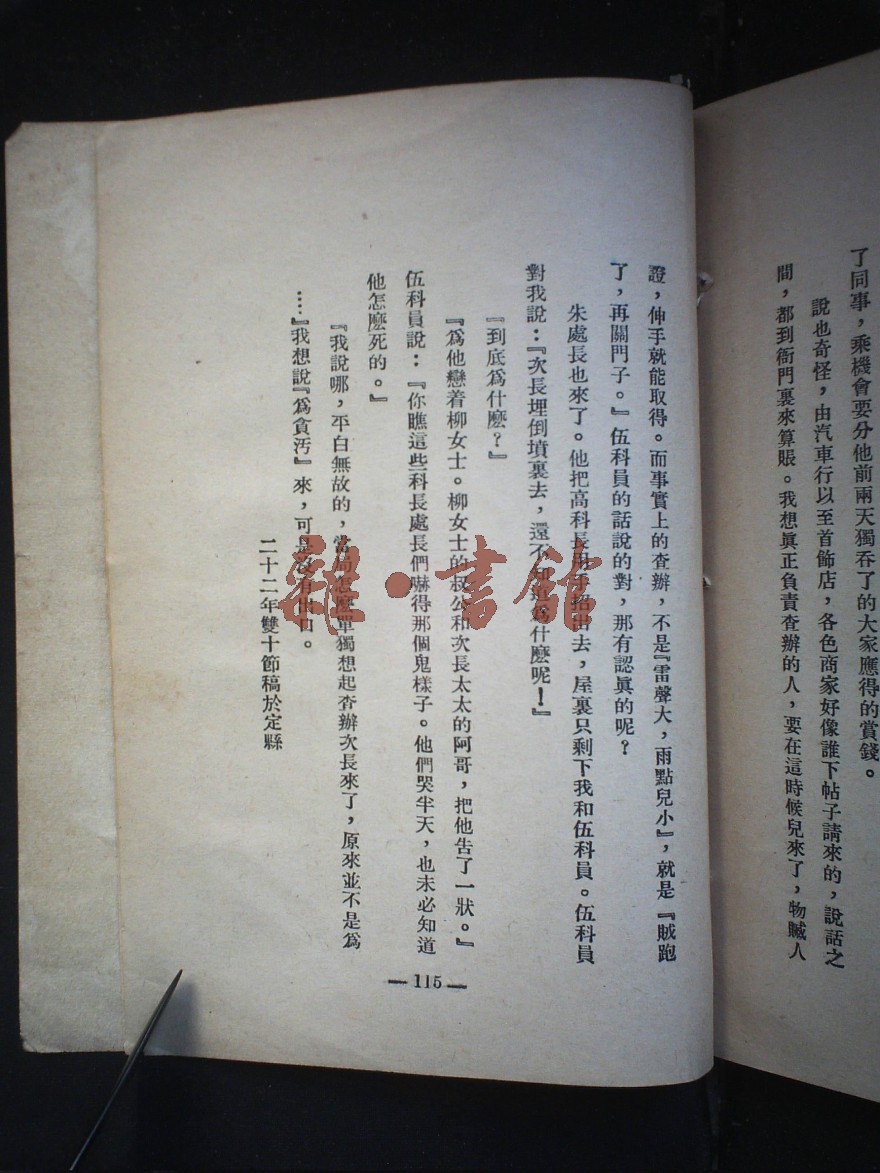 了同事，乘機會要分他前兩天獨吞了的大家應得的賞錢。
說也奇怪，由汽車行以至首飾店，各色商家好像誰下帖子請來的，說話之
間，都到衙門裏來算賬。我想眞正負責查辦的人，要在這時候兒來了，物贓人
證，伸手就能取得。而事實上的查辦，不是『雷聲大，雨點兒小』，就是『賊跑
了，再關門子。』伍科員的話說的對，那有認眞的呢？
朱處長也來了。他把高科長用手招出去，屋裏只剩下我和伍科員。伍科員
對我說：『次長埋倒墳裏去，還不知道爲什麽呢！』
『到底爲什麽？』
『爲他戀着柳女士。柳女士的叔公和次長太太的阿哥，把他告了一狀。』
伍科員說：『你瞧這些科長處長們嚇得那個鬼樣子。他們哭半天，也未必知道
他怎麽死的。』
『我說哪，平白無故的，當局怎麽單獨想起查辦次長來了，原來並不是爲
⋯⋯『我想說『爲貪汚』來，可是沒有出口。
二十二年雙十節稿於定縣
— 115 —
雜·書館